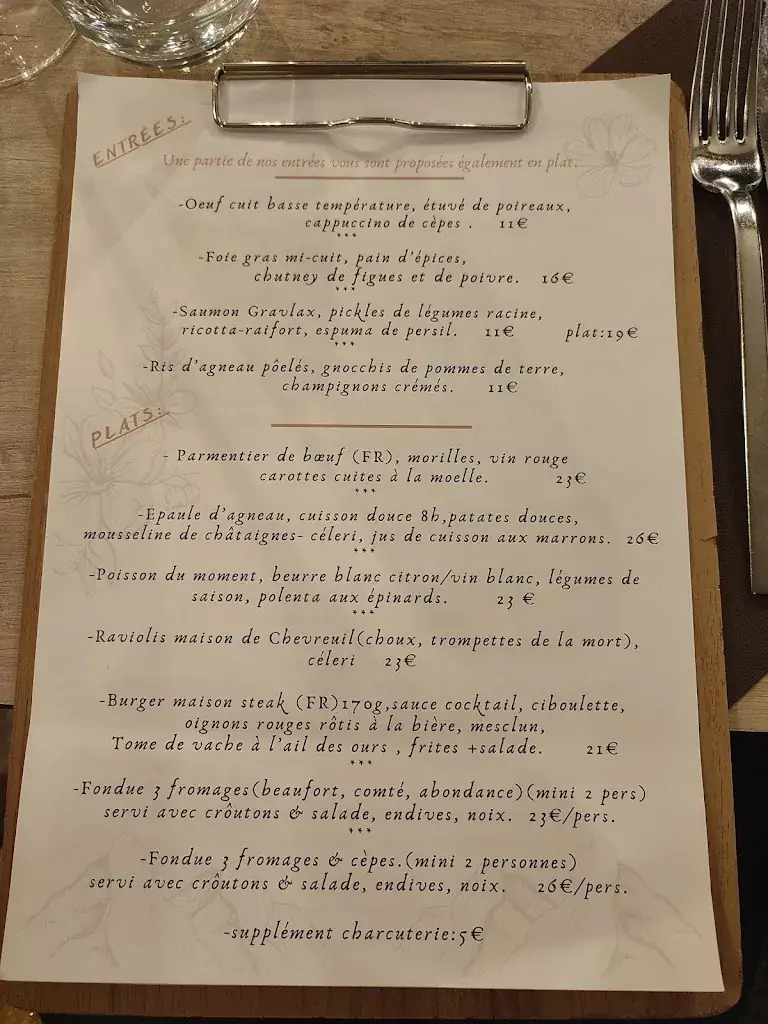 ENTRÉES:
Une partie de nos entrées vous sont proposées également en plat.
-Oeuf cuit basse température, étuvé de poireaux,
cappuccino de cèpes . 11€
***
-Foie gras mi-cuit, pain d'épices,
chutney de figues et de poivre. 16€
***
-Saumon Gravlax, pickles de légumes racine,
ricotta-raifort, espuma de persil. 11€ plat:19€
***
-Ris d'agneau pôelés, gnocchis de pommes de terre,
champignons crémés. 11€
PLATS:
- Parmentier de bœuf (FR), morilles, vin rouge
carottes cuites à la moelle. 23€
***
-Epaule d'agneau, cuisson douce 8h,patates douces,
mousseline de châtaignes- céleri, jus de cuisson aux marrons. 26€
***
-Poisson du moment, beurre blanc citron/vin blanc, légumes de
saison, polenta aux épinards. 23 €
***
-Raviolis maison de Chevreuil(choux, trompettes de la mort),
céleri 23€
-Burger maison steak (FR)170g,sauce cocktail, ciboulette,
oignons rouges rôtis à la bière, mesclun,
Tome de vache à l'ail des ours , frites +salade. 21€
***
-Fondue 3 fromages(beaufort, comté, abondance)(mini 2 pers)
servi avec crôutons & salade, endives, noix. 23€/pers.
***
-Fondue 3 fromages & cèpes.(mini 2 personnes)
servi avec crôutons & salade, endives, noix. 26€/pers.
-supplément charcuterie:5€